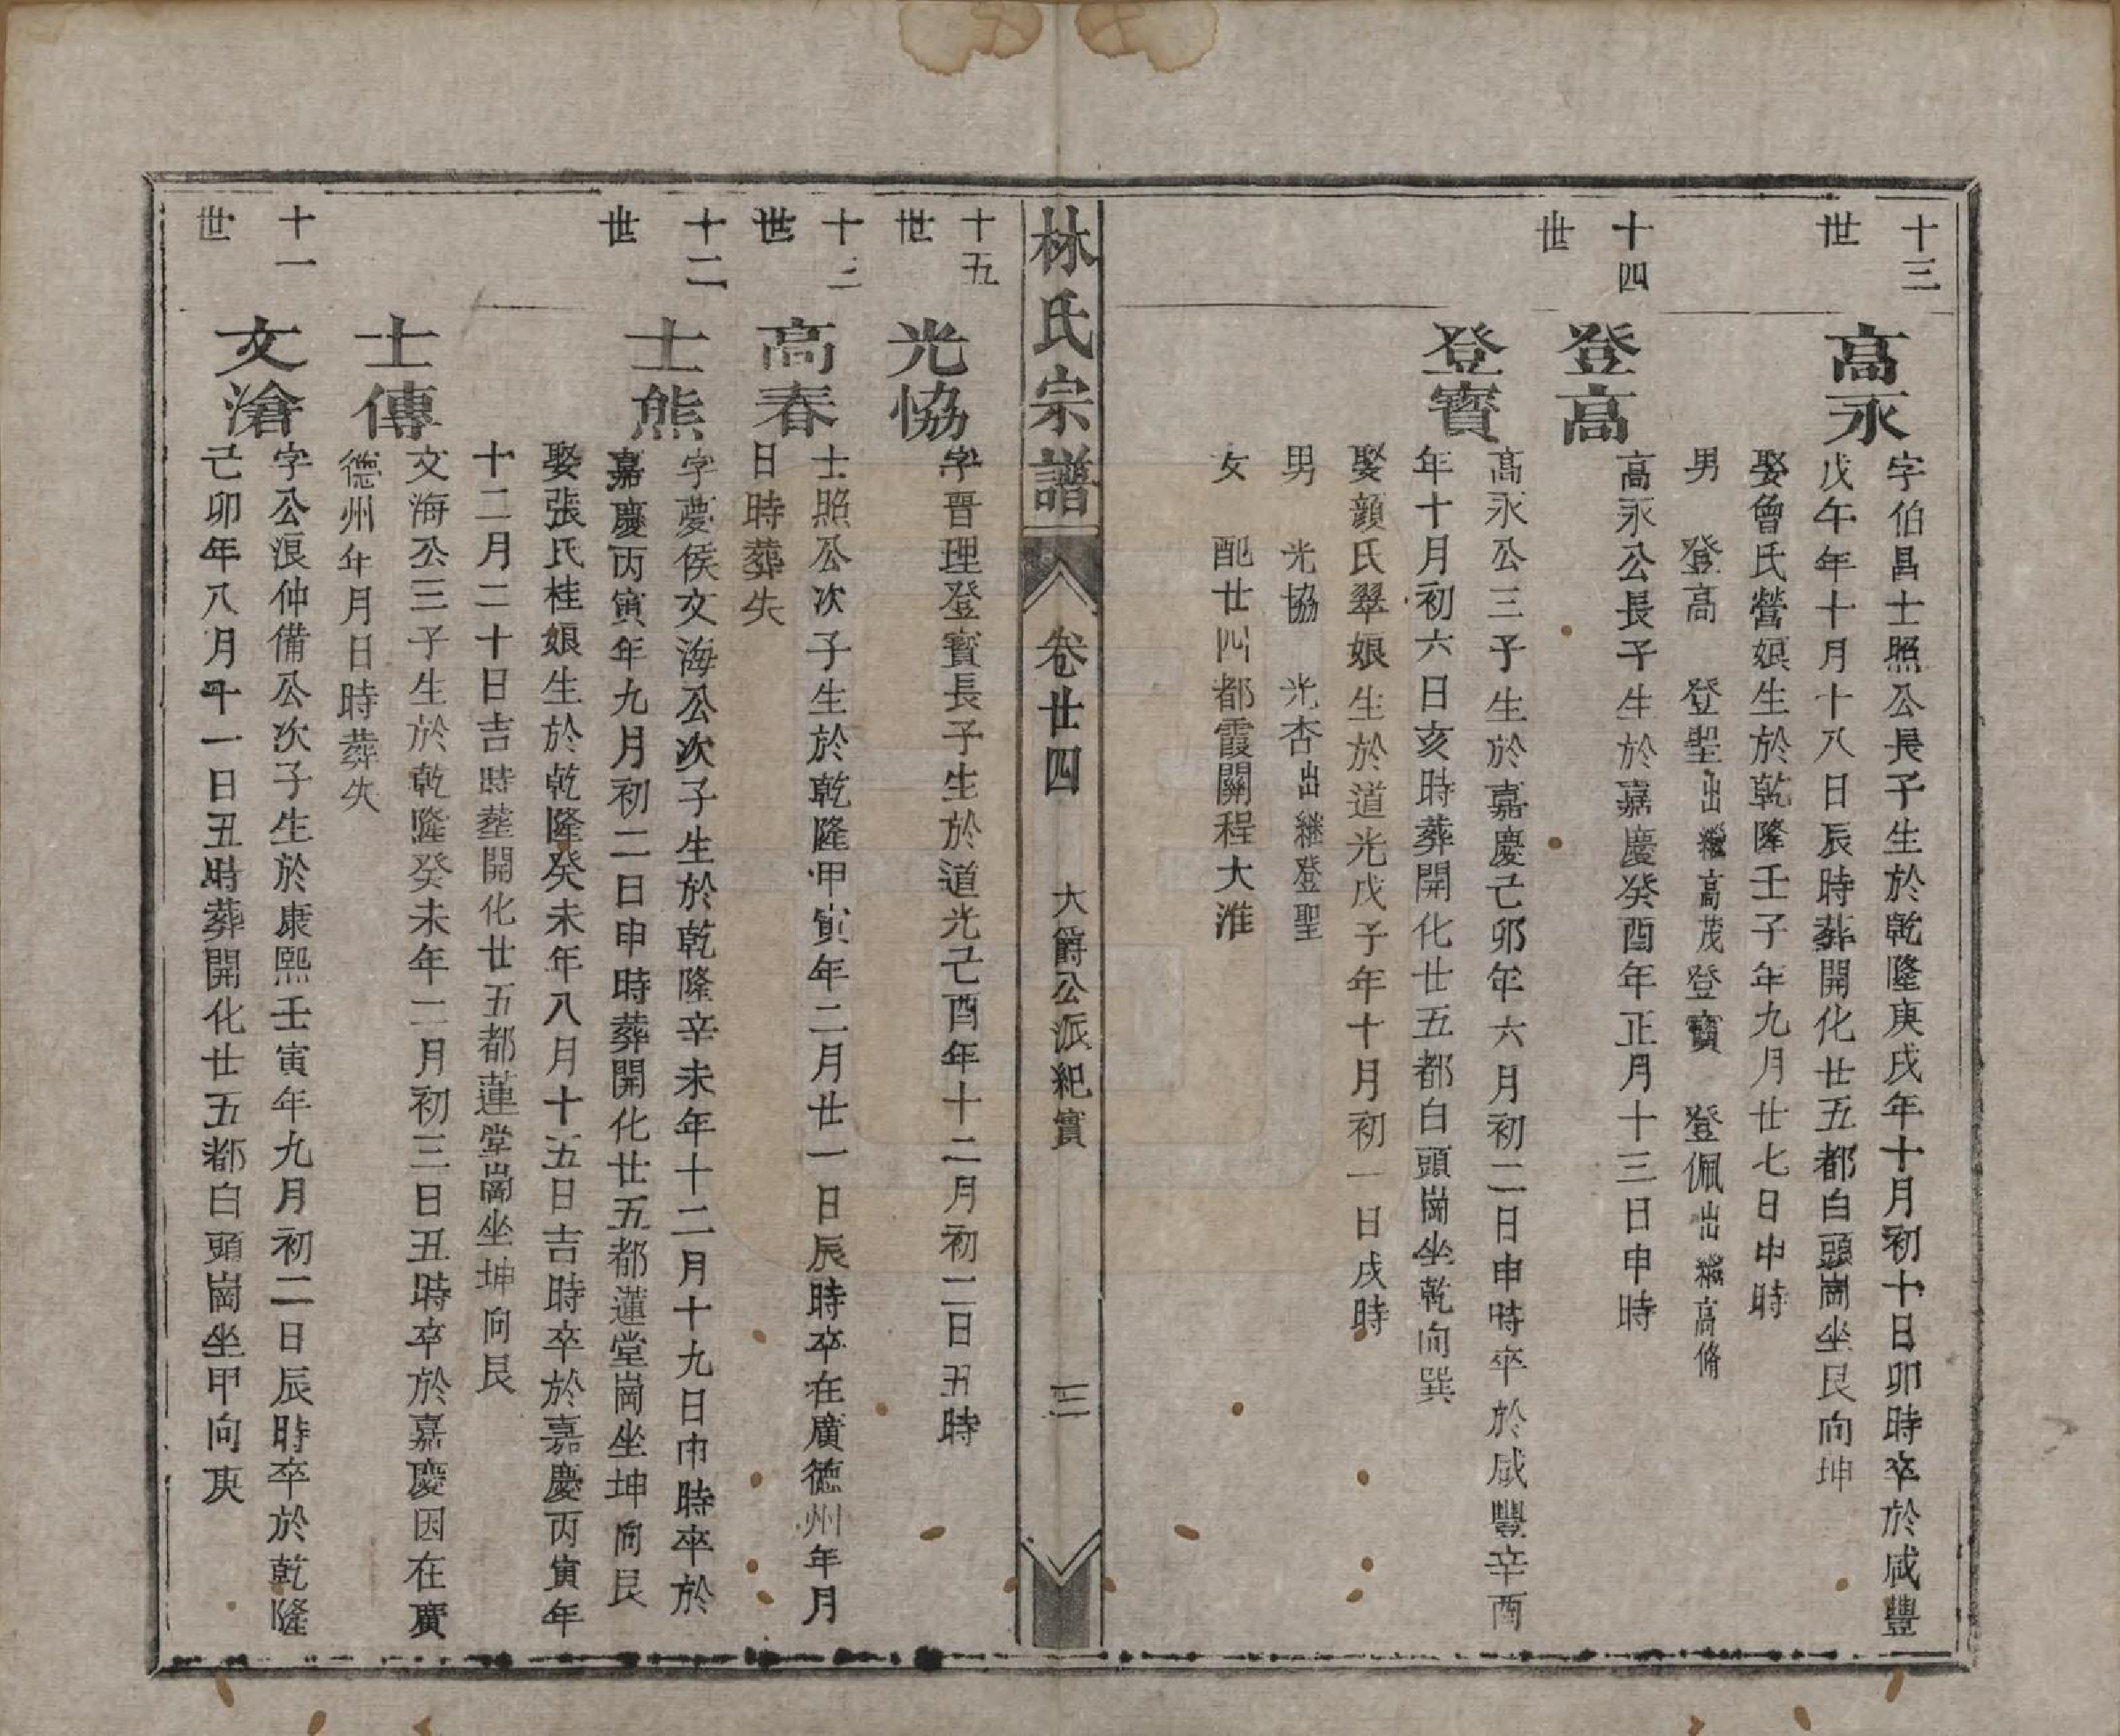 十三世
高永
字伯昌士照公長子生於乾隆庚戌年十月初十日卯時卒於咸豐
戊午年十月十八日辰時葬開化廿五都白頭崗坐艮向坤
娶曾氏營娯生於乾隆壬子年九月廿七日申時
男 登高 登聖出繼高茂登寶 登佩出繼高脩
十四世
登高
高永公長子生於嘉慶癸酉年正月十三日申時
登寶
高永公三子生於嘉慶己卯年六月初二日申時卒於咸豐辛酉
年十月初六日亥時葬開化廿五都白頭崗坐乾向巽
娶顔氏翠娘生於道光戊子年十月初一日戌時
男 光協 光杏出継登聖
女 配廿四都霞關程大淮
林氏宗譜
卷廿四
大爵公派紀實
三
十五世
光恊
字晋理登寶長子生於道光己酉年十二月初二日丑時
十三世
高春
士照公次子生於乾隆甲寅年二月廿一日辰時卒在廣德州年月
日時葬失
十二世
士熊
字夢侯文海公次子生於乾隆辛未年十二月十九日巾時卒於
嘉慶丙寅年九月初二日申時葬開化廿五都蓮堂崗坐坤向艮
娶張氏桂娘生於乾隆癸未年八月十五日吉時卒於嘉慶丙寅年
十二月二十日吉時塟開化廿五都蓮堂崗坐坤向艮
士傳
文海公三子生於乾隆癸未年二月初三日丑時卒於嘉慶因在廣
德州年月日時葬失
十一世
文滄
字公浪仲備公次子生於康熙壬寅年九月初二日辰時卒於乾隆
己卯年八月十一日丑時葬開化廿五都白頭崗坐甲向庚